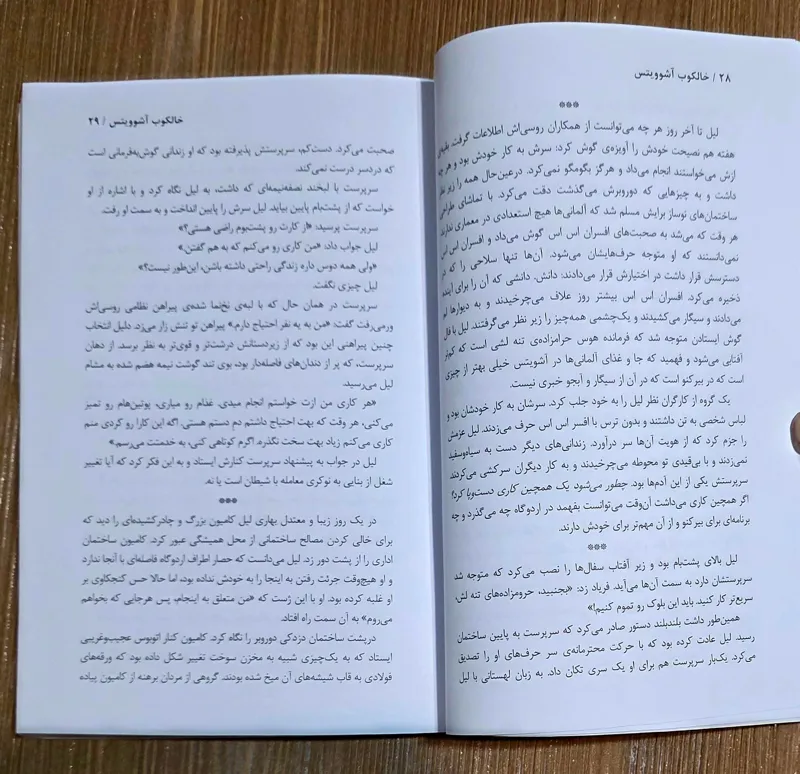 ۲۸ / خالکوب آشوویتس
***
لیل تا آخر روز هر چه می‌توانست از همکاران روسی‌اش اطلاعات گرفت. بقیه‌ی
هفته هم نصیحت خودش را آویزه‌ی گوش کرد: سرش به کار خودش بود و هر چه
ازش می‌خواستند انجام می‌داد و هرگز بگومگو نمی‌کرد. درعین‌حال همه را زیر نظر
داشت و به چیزهایی که دوروبرش می‌گذشت دقت می‌کرد. با تماشای طراحی
ساختمان‌های نوساز برایش مسلم شد که آلمانی‌ها هیچ استعدادی در معماری ندارند.
هر وقت که می‌شد به صحبت‌های افسران اس اس گوش می‌داد و افسران اس اس
نمی‌دانستند که او متوجه حرف‌هایشان می‌شود. آن‌ها تنها سلاحی را که در
دسترسش قرار داشت در اختیارش قرار می‌دادند: دانش. دانشی که آن را برای آینده
ذخیره می‌کرد. افسران اس اس بیشتر روز علاف می‌چرخیدند و به دیوارها لم
می‌دادند و سیگار می‌کشیدند و یک‌چشمی همه‌چیز را زیر نظر می‌گرفتند. لیل با فال
گوش ایستادن متوجه شد که فرمانده هوس حرامزاده‌ی تنه لشی است که کم‌تر
آفتابی می‌شود و فهمید که جا و غذای آلمانی‌ها در آشویتس خیلی بهتر از چیزی
است که در بیرکنو است که در آن از سیگار و آبجو خبری نیست.
یک گروه از کارگران نظر لیل را به خود جلب کرد. سرشان به کار خودشان بود و
لباس شخصی به تن داشتند و بدون ترس با افسر اس اس حرف می‌زدند. لیل عزمش
را جزم کرد که از هویت آن‌ها سر درآورد. زندانی‌های دیگر دست به سیاه‌وسفید
نمی‌زدند و با بی‌قیدی تو محوطه می‌چرخیدند و به کار دیگران سرکشی می‌کردند
سرپرستش یکی از این آدم‌ها بود. چطور می‌شود یک همچین کاری دست‌وپا کرد؟
اگر همچین کاری می‌داشت آن‌وقت می‌توانست بفهمد در اردوگاه چه می‌گذرد و چه
برنامه‌ای برای بیرکنو و از آن مهم‌تر برای خودش دارند.
***
لیل بالای پشت‌بام بود و زیر آفتاب سفال‌ها را نصب می‌کرد که متوجه شد
سرپرستشان دارد به سمت آن‌ها می‌آید. فریاد زد: «بجنبید، حرومزاده‌های تنه لش،
سریع‌تر کار کنید. باید این بلوک رو تموم کنیم!»
همین‌طور داشت بلندبلند دستور صادر می‌کرد که سرپرست به پایین ساختمان
رسید. لیل عادت کرده بود که با حرکت محترمانه‌ی سر حرف‌های او را تصدیق
می‌کرد. یک‌بار سرپرست هم برای او یک سری تکان داد. به زبان لهستانی با لیل
خالکوب آشوویتس / ۲۹
صحبت می‌کرد. دست‌کم، سرپرستش پذیرفته بود که او زندانی گوش‌به‌فرمانی است
که دردسر درست نمی‌کند.
سرپرست با لبخند نصفه‌نیمه‌ای که داشت، به لیل نگاه کرد و با اشاره از او
خواست که از پشت‌بام پایین بیاید. لیل سرش را پایین انداخت و به سمت او رفت.
سرپرست پرسید: «از کارت رو پشت‌بوم راضی هستی؟»
لیل جواب داد: «من کاری رو می‌کنم که به هم گفتن.»
«ولی همه دوس داره زندگی راحتی داشته باشن، این‌طور نیست؟»
لیل چیزی نگفت.
سرپرست در همان حال که با لبه‌ی نخ‌نما شده‌ی پیراهن نظامی روسی‌اش
ورمی‌رفت گفت: «من به یه نفر احتیاج دارم.» پیراهن تو تنش زار می‌زد. دلیل انتخاب
چنین پیراهنی این بود که از زیردستانش درشت‌تر و قوی‌تر به نظر برسد. از دهان
سرپرست، که پر از دندان‌های فاصله‌دار بود، بوی تند گوشت نیمه هضم شده به مشام
لیل می‌رسید.
«هر کاری من ازت خواستم انجام میدی. غذام رو میاری، پوتین‌هام رو تمیز
می‌کنی، هر وقت که بهت احتیاج داشتم دم دستم هستی. اگه این کارا رو کردی منم
کاری می‌کنم زیاد بهت سخت نگذره. اگرم کوتاهی کنی، به خدمتت می‌رسم.»
لیل در جواب به پیشنهاد سرپرست کنارش ایستاد و به این فکر کرد که آیا تغییر
شغل از بنایی به نوکری معامله با شیطان است یا نه.
***
در یک روز زیبا و معتدل بهاری لیل کامیون بزرگ و چادرکشیده‌ای را دید که
برای خالی کردن مصالح ساختمانی از محل همیشگی عبور کرد. کامیون ساختمان
اداری را از پشت دور زد. لیل می‌دانست که حصار اطراف اردوگاه فاصله‌ای با آنجا ندارد
و او هیچ‌وقت جرئت رفتن به اینجا را به خودش نداده بود، اما حالا حس کنجکاوی بر
او غلبه کرده بود. او با این ژست که «من متعلق به اینجام، پس هرجایی که بخواهم
می‌روم» به آن سمت راه افتاد.
درپشت ساختمان دزدکی دوروبر را نگاه کرد. کامیون کنار اتوبوس عجیب‌وغریبی
ایستاد که به یک‌چیزی شبیه به مخزن سوخت تغییر شکل داده بود که ورقه‌های
فولادی به قاب شیشه‌های آن میخ شده بودند. گروهی از مردان برهنه از کامیون پیاده